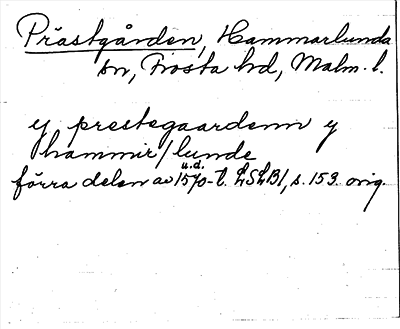 Prästgården, Hammarlunda
sn, Frosta hd, Malm. l.
y prestegaardenn y
hammir/lunde
u.d.
förra delen av 1570-t. LSLB1, s. 153. orig.